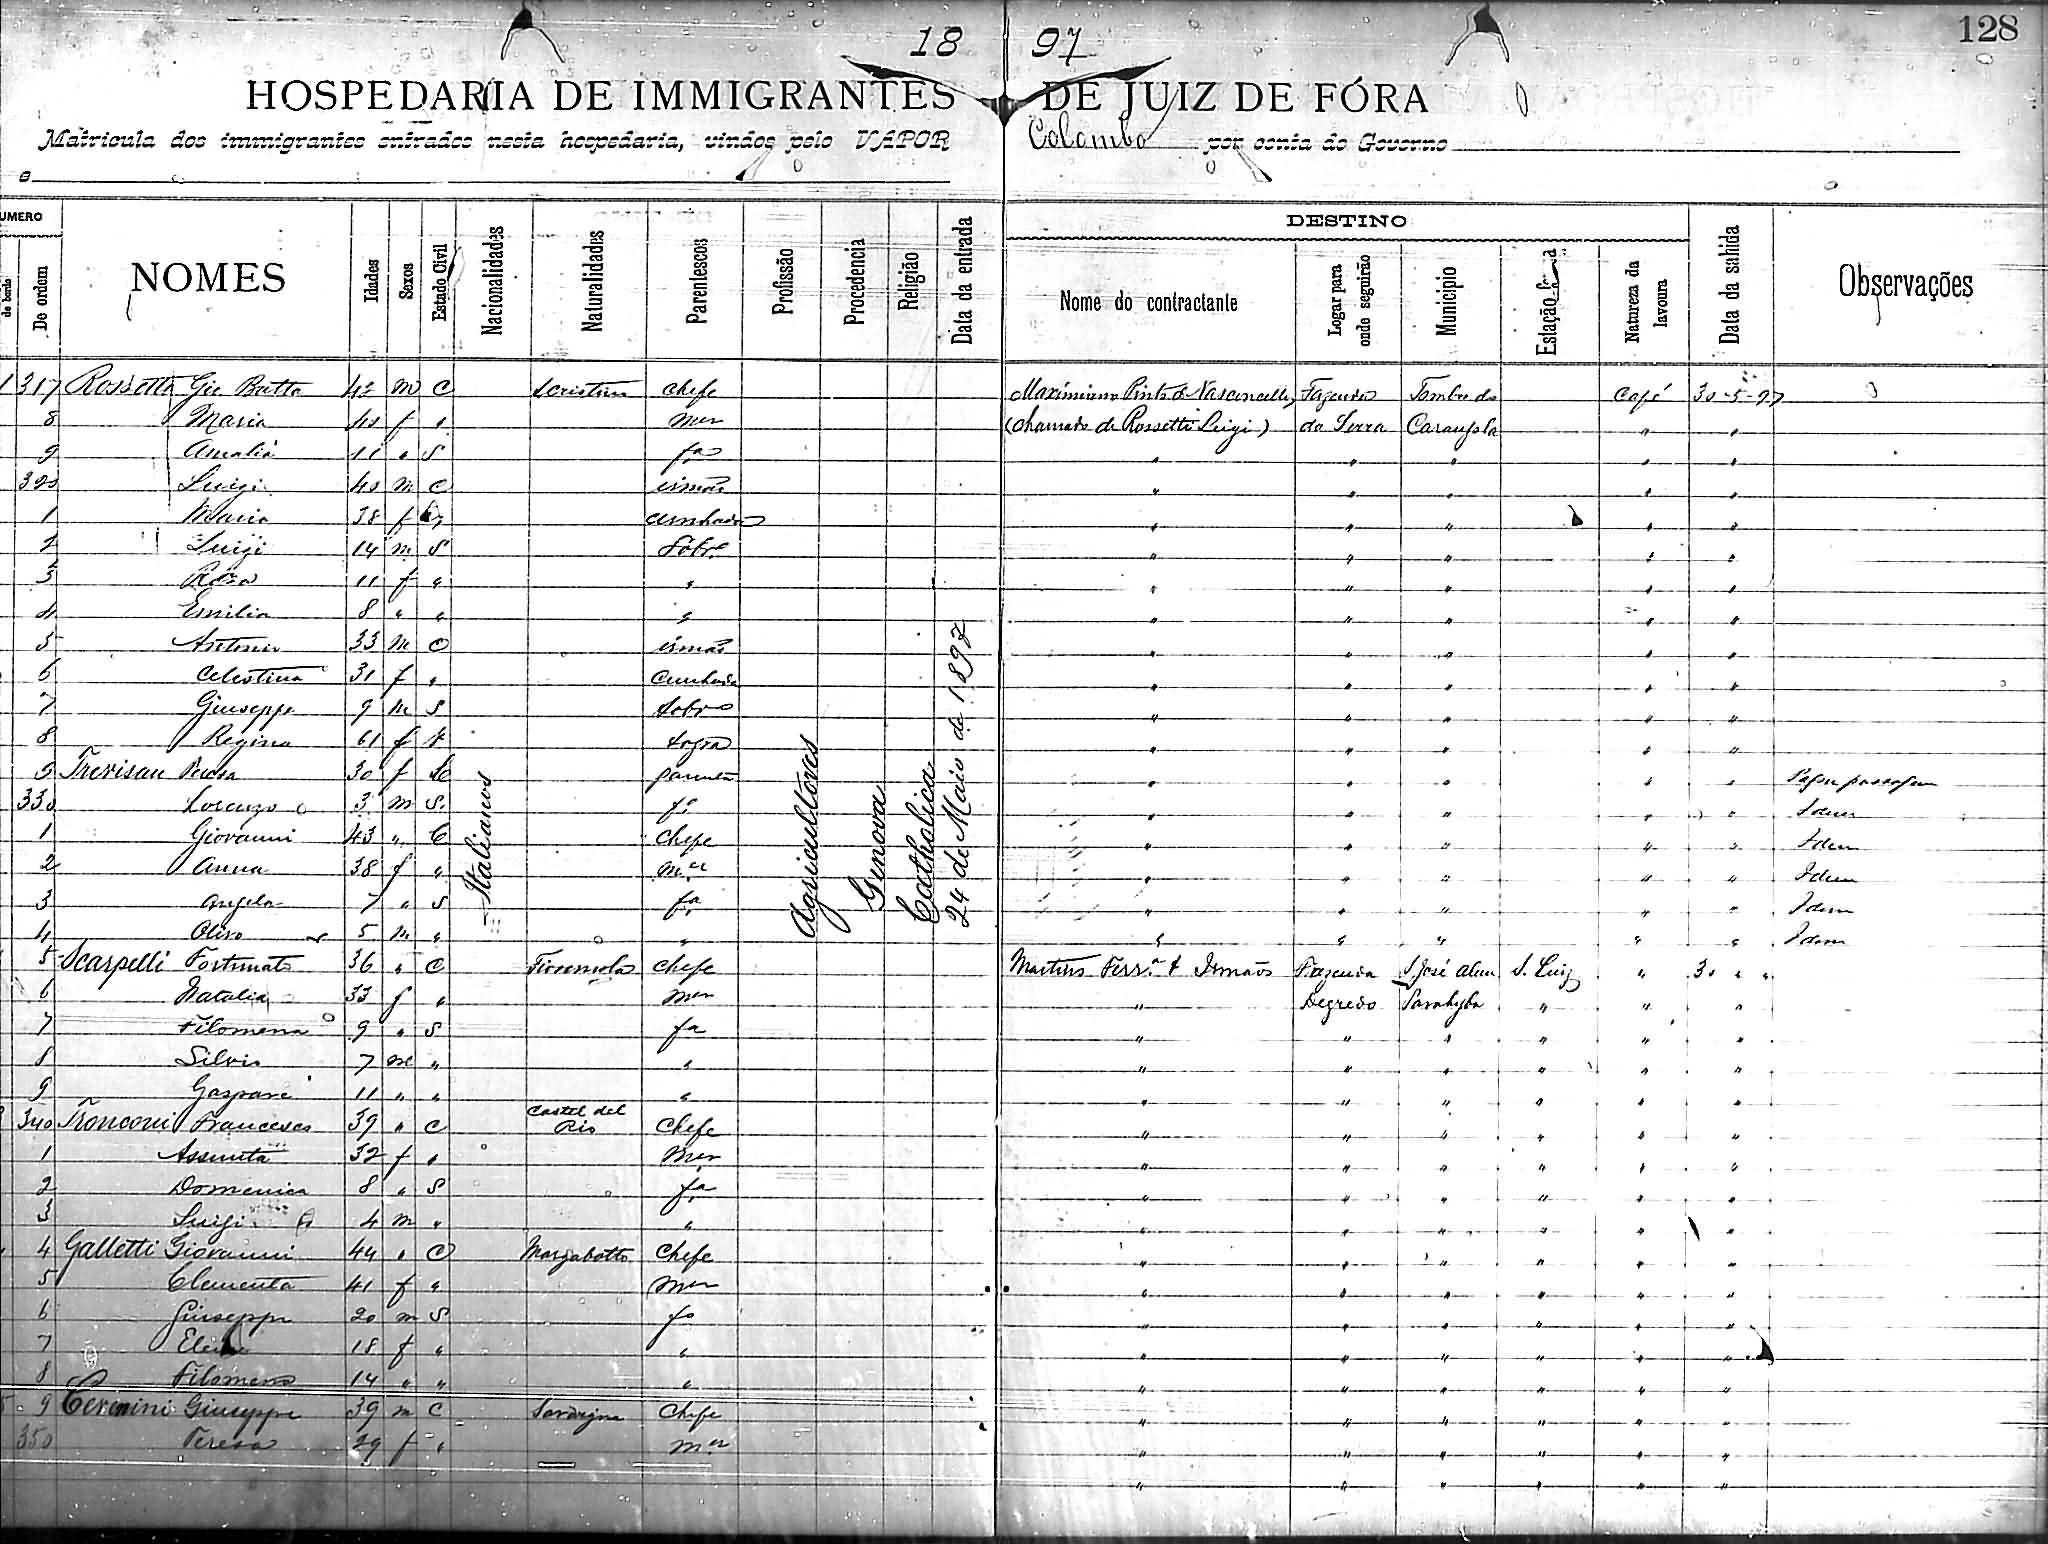 128
18 97
HOSPEDARIA DE IMMIGRANTES DE JUIZ DE FÓRA
Matricula dos immigrantes entrados nesta hospedaria, vindos pelo VAPOR Colombo por conta do Governo
e
UMERO DESTINO
de bordo De ordem NOMES Idades Sexos Estado Civil Nacionalidades Naturalidades Parentescos Profissão Procedencia Religião Data da entrada Nome do contractante Logar para onde seguirão Municipio Estação Natureza da lavoura Data da sahida Observações
Italianos
Agricultores
Genova
Catholica
24 de Maio de 1897
1 317 Rossetto Gio Batta 42 m C chefe Maximiano Pinto de Vasconcellos Fazenda Tombos do Café 30-5-97
8 Maria 40 f " mer (chamado de Rossetti Luigi) da Serra Carangola " "
9 Amalia 11 " S fa " " " " "
320 Luigi 40 m C irmão " " " " "
1 Maria 38 f " cunhada " " " " "
2 Luigi 14 m S Sobro " " " " "
3 Rosa 11 f " " " " " " "
4 Emilia 8 " " " " " " " "
5 Antonio 33 m C irmão " " " " "
6 Celestina 31 f " cunhada " " " " "
7 Giuseppe 9 m S sobro " " " " "
8 Regina 61 f sogra " " " " "
9 Trevisan Teresa 30 f C parenta " " " " " Pagou passagem
330 Lorenzo 3 m S fo " " " " " Idem
1 Giovanni 43 " C Chefe " " " " " Idem
2 Anna 38 f " mer " " " " " Idem
3 Angela 7 " S fa " " " " " Idem
4 Olivo 5 m " " " " " " " Idem
5 Scarpelli Fortunato 36 " C Chefe Martins Ferra & Irmãos Fazenda S. José alem S. Luiz " 30 " "
6 Natalia 33 f " mer " Degredo Parahyba " " "
7 Filomena 9 " S fa " " " " " "
8 Silvio 7 m " " " " " " " "
9 Gaspare 11 " " " " " " " " "
340 Tronconi Francesco 39 " C Castel del Rio Chefe " " " " " "
1 Assunta 32 f " Mer " " " " " "
2 Domenica 8 " S fa " " " " " "
3 Luigi 4 m " " " " " " " "
4 Galletti Giovanni 44 " C Margabotto Chefe " " " " " "
5 Clementa 41 f " Mer " " " " " "
6 Giuseppe 20 m S fo " " " " " "
7 18 f " " " " " " " "
8 Filomena 14 " " " " " " " " "
9 Cerinini Giuseppe 39 m C Sardegna Chefe " " " " " "
350 Teresa 29 f " mer " " " " " "
" " " " " "